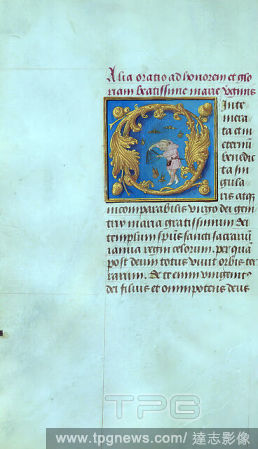 Alia oratio ad honorem et glo
riam beatissime marie virginis
Inte
merata
et in
eternũ
benedic
ta sin
gula
ris atq
incomparabilis virgo dei geni
trix maria gratissimum dei
templum spũs sancti sacrariũ
ianua regni celorum. per quã
post deum totus vivit orbis ter
rarum. Et enim unigenite
dei filius et omnipotens deus
TPG
www.tpgnews.com/達志影像